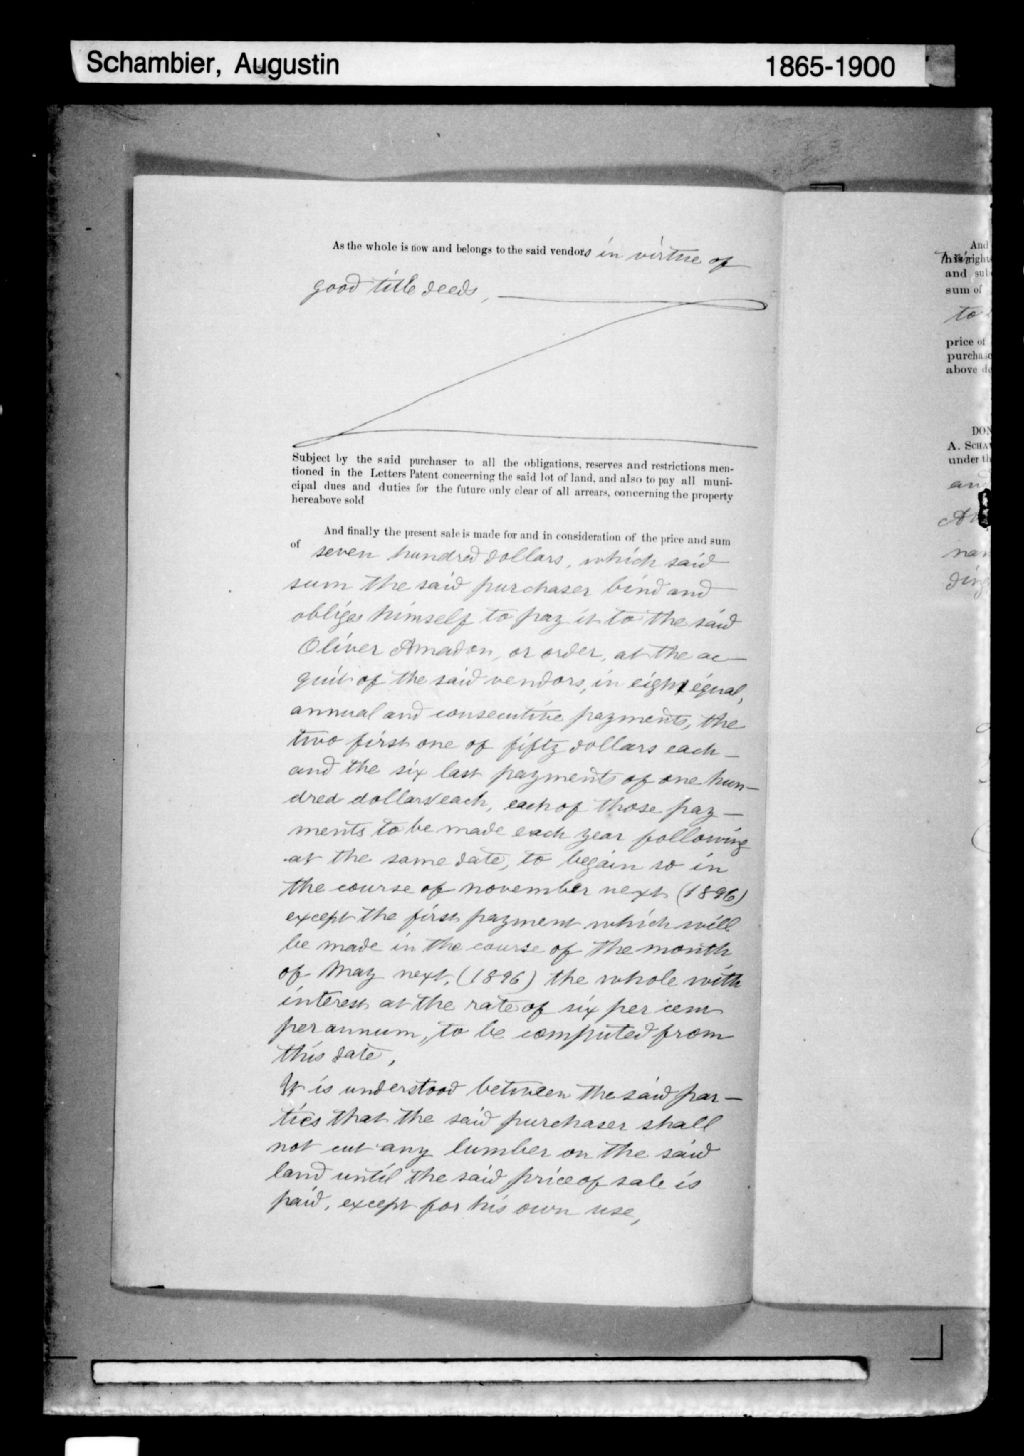 Schambier, Augustin 1865-1900
As the whole is now and belongs to the said vendors in virtue of
good title deeds,
Subject by the said purchaser to all the obligations, reserves and restrictions men-
tioned in the Letters Patent concerning the said lot of land, and also to pay all muni-
cipal dues and duties for the future only clear of all arrears, concerning the property
hereabove sold
And finally the present sale is made for and in consideration of the price and sum
of seven hundred dollars, which said
sum the said purchaser bind and
obliges himself to pay it to the said
Oliver Amadon, or order, at the ac-
quit of the said vendors, in eight equal,
annual and consecutive payments, the
two first one of fifty dollars each
and the six last payments of one hun-
dred dollars each, each of those pay-
ments to be made each year following
at the same date, to begain so in
the course of november next (1896)
except the first payment which will
be made in the course of the month
of May next, (1896) the whole with
interest at the rate of six per cent
per annum, to be computed from
this date,
It is understood between the said par-
ties that the said purchaser shall
not cut any lumber on the said
land until the said price of sale is
paid, except for his own use,
And
and
sum of
to
price of
purchase
above
A.
under